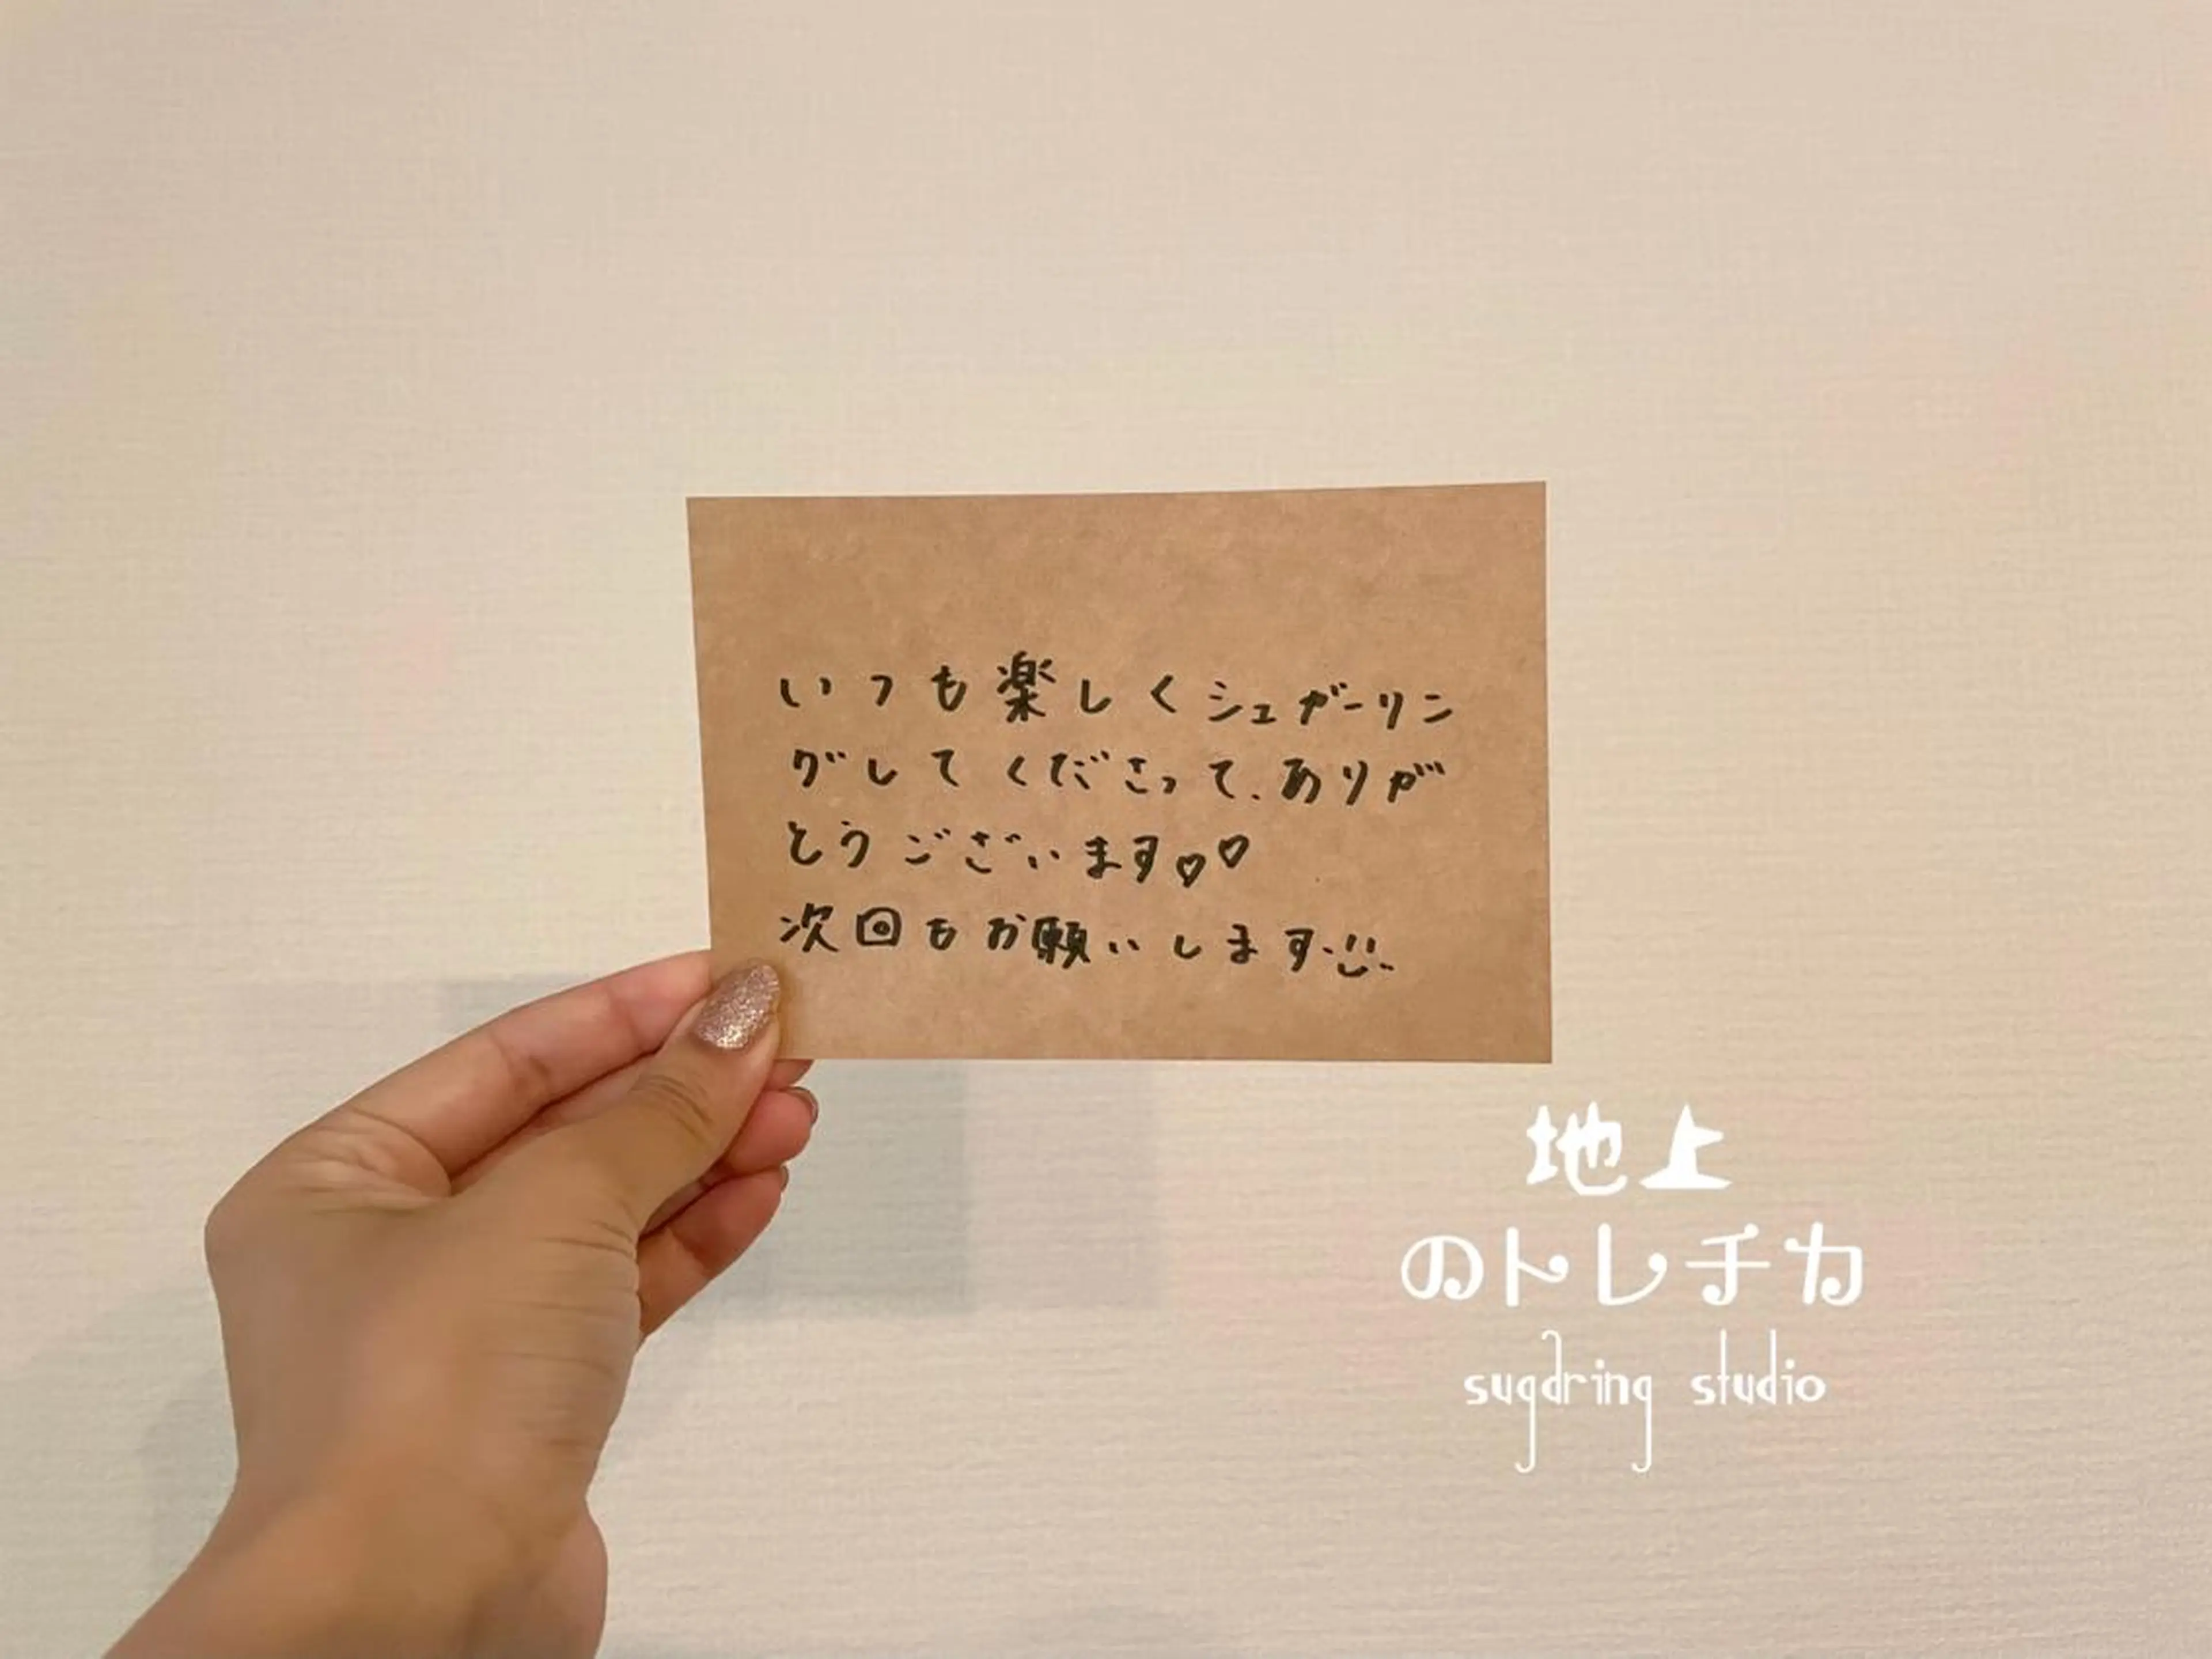 いつも楽しくシュガーリン
グしてくださって、ありが
とうございます♡♡
次回もお願いします
地上
のトレチカ
sugaring studio